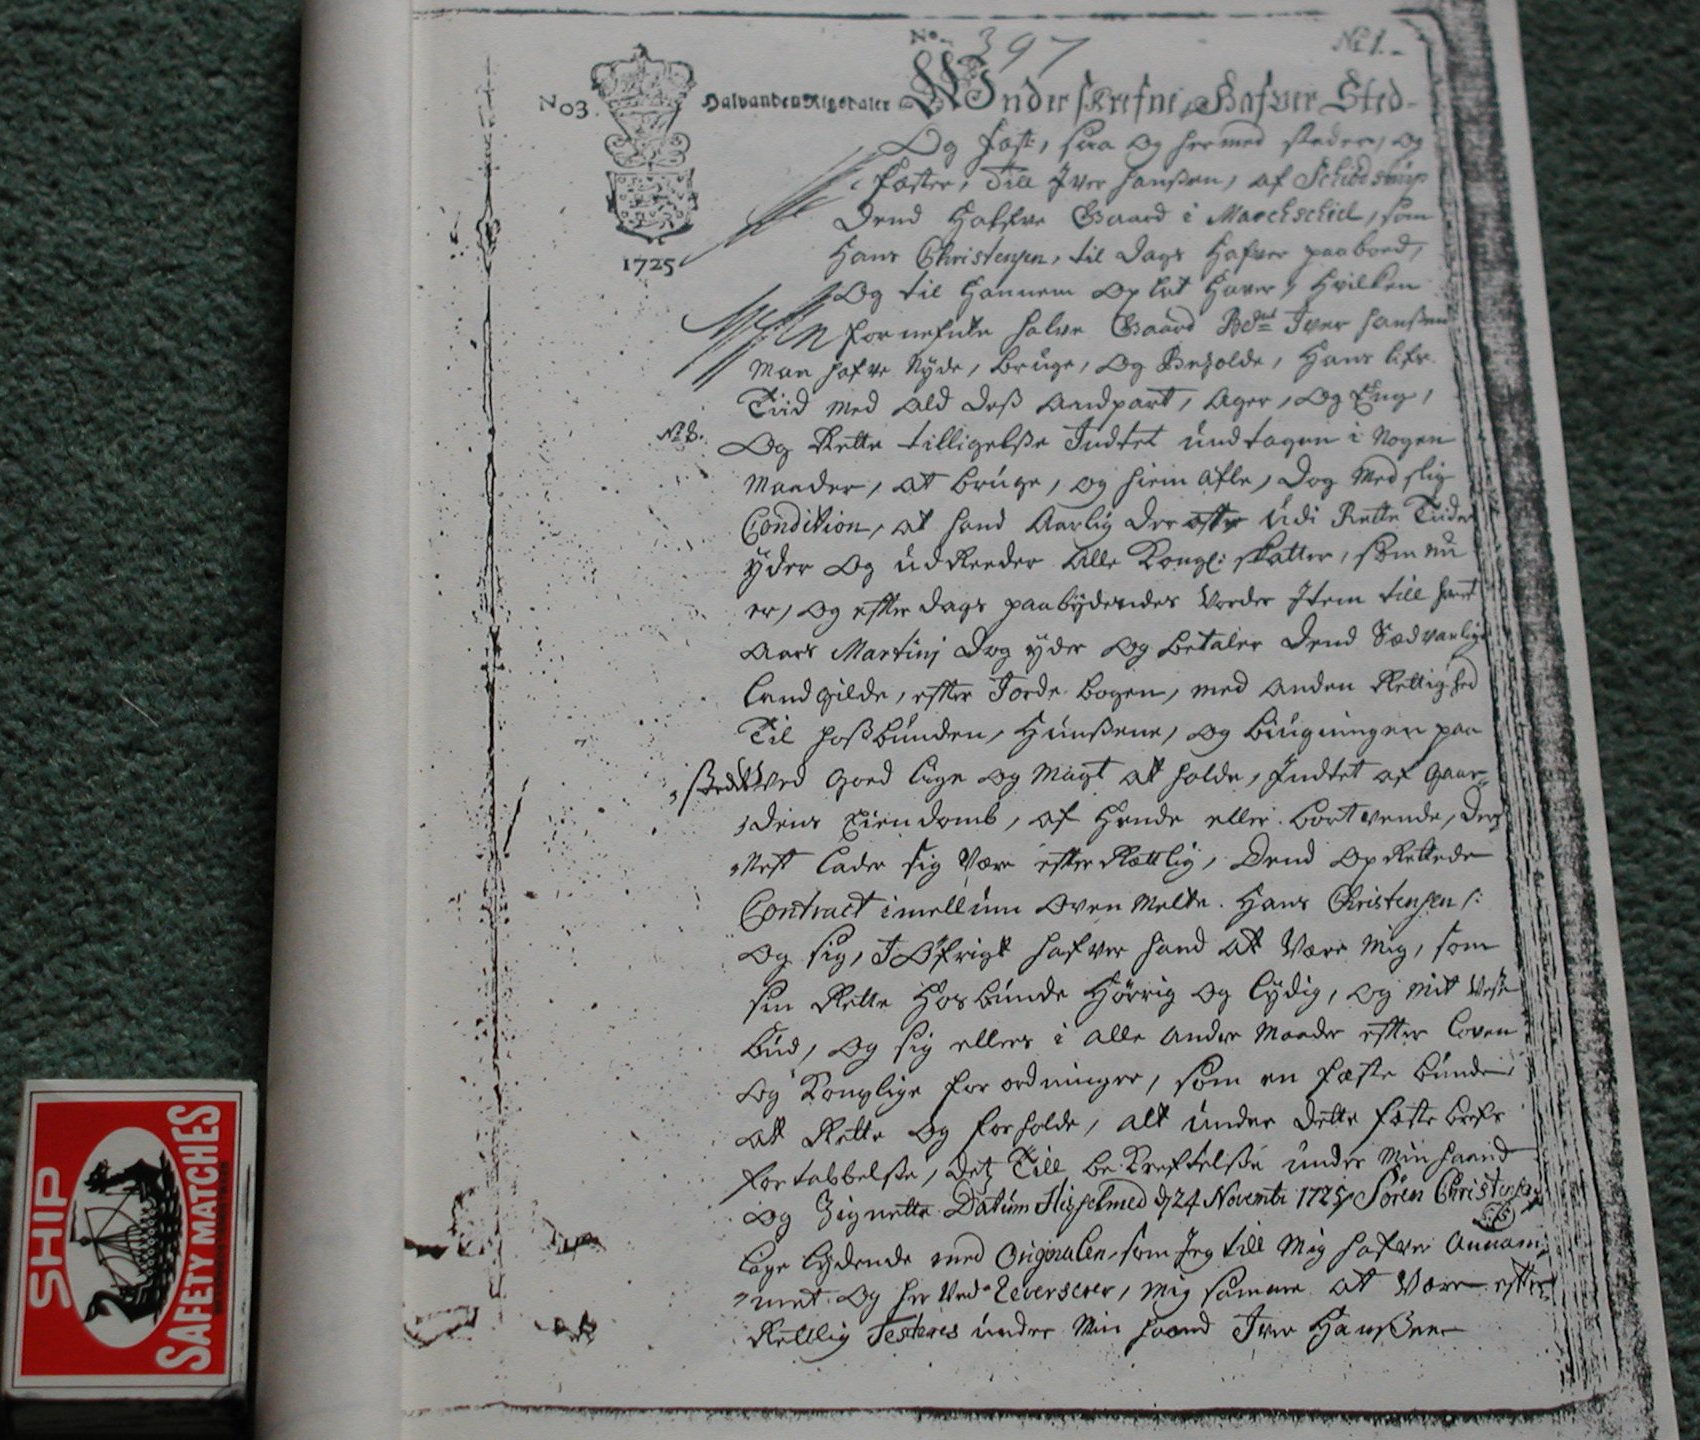 No. 397
No 1.
No 3. Halvanden Rigsdaler
1725
Underskrefne Hafver Sted-
Og fæst, saa og hermed steder, og
fæster, Till Iver Hanßen, af Schiødstrup
Dend Halfve Gaard i Marchschiel, som
Hans Christensen, til Dags Hafver paaboed,
Og til Hannem Oplat Haver, Hvilken
fornefnte halve Gaard Iver Hanßen
Maa hafve Nyde, bruge, og Beholde, Hans lifs
Tiid med ald deß Andpart, Ager, og Eng,
Og Rette tilligelße Indtet undtagen i Nogen
Maader, at bruge, og hiem afle, dog med slig
Condition, at hand Aarlig der efter udi Rette Tiider
yder og udReeder Alle Kongl: skatter, som nu
er, og efter dags paabydendes Vorder Item till hvert
Aars Martinj Dag yder og betaler Dend Sædvanlige
landgilde, efter Jorde bogen, med anden Rettighed
Til hoßbunden, Huußene, og biugningen paa
ved goed lige og Magt at holde, Indtet af Gaar-
dens Eiendomb, af Hende eller bortvende, der
Nest lader sig Være efterRættlig, Dend opRettede
Contract imellum oven Melte. Hans Christensen
og sig, I Øfrigt hafver hand at Være Mig, som
sin Rette Hosbunde Hørrig og lydig, og mit Viße
bud, og sig ellers i alle andre Maader efter loven
og Konglige forordninger, som en fæste bunde
at Rette og forholde, alt under dette fæste brefs
fortabbelße, det Till beKreftelße under Min haand
og Zignette Datum d 24 Novembr 1725 Sören Christensen
lige lydende med Originalen, som Jeg till Mig hafver Annam-
met og her Ved Reverserer, mig samme at Være efter-
Rettlig Testeres under Min haand Iver Hanßen
SHIP
SAFETY MATCHES